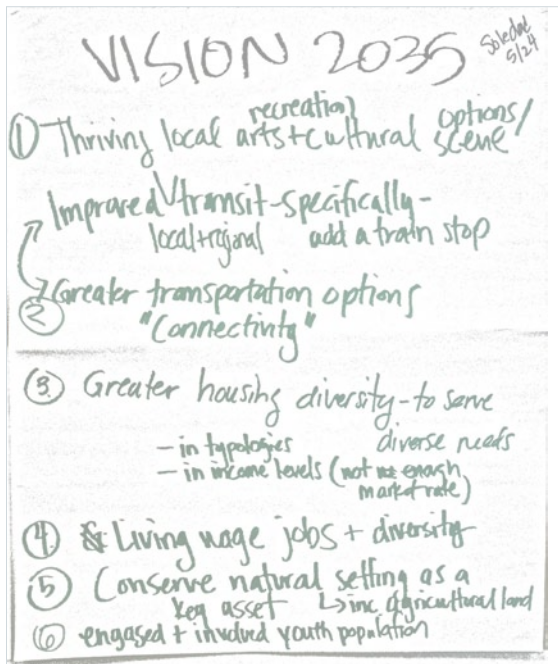 VISION 2035
Soledad
5/24
① Thriving local arts + cultural options/
recreation)
scene
Improved transit - specifically -
local + regional add a train stop
② Greater transportation options
"Connectivity"
③ Greater housing diversity - to serve
diverse needs
- in typologies
- in income levels (not enough
market rate)
④ & Living wage jobs + diversity
⑤ Conserve natural setting as a
key asset ↳ inc agricultural land
⑥ engaged + involved youth population